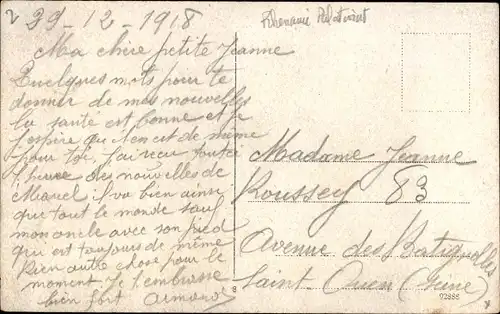 2
29-12-1918
Rhenanie Palatinat
Ma chère petite Jeanne
Quelques mots pour te
donner de mes nouvelles
la santé est bonne et je
j'espère qu'il en est de même
pour toi, j'ai reçu toute
l'heure des nouvelles de
Marcel il va bien ainsi
que tout le monde sauf
mon oncle avec son pied
qui est toujours de même
Rien autre chose pour le
moment. Je t'embrasse
bien fort Armand
Madame Jeanne
Roussey 83
Avenue des Batignolles
Saint Ouen (Seine)
8
92886